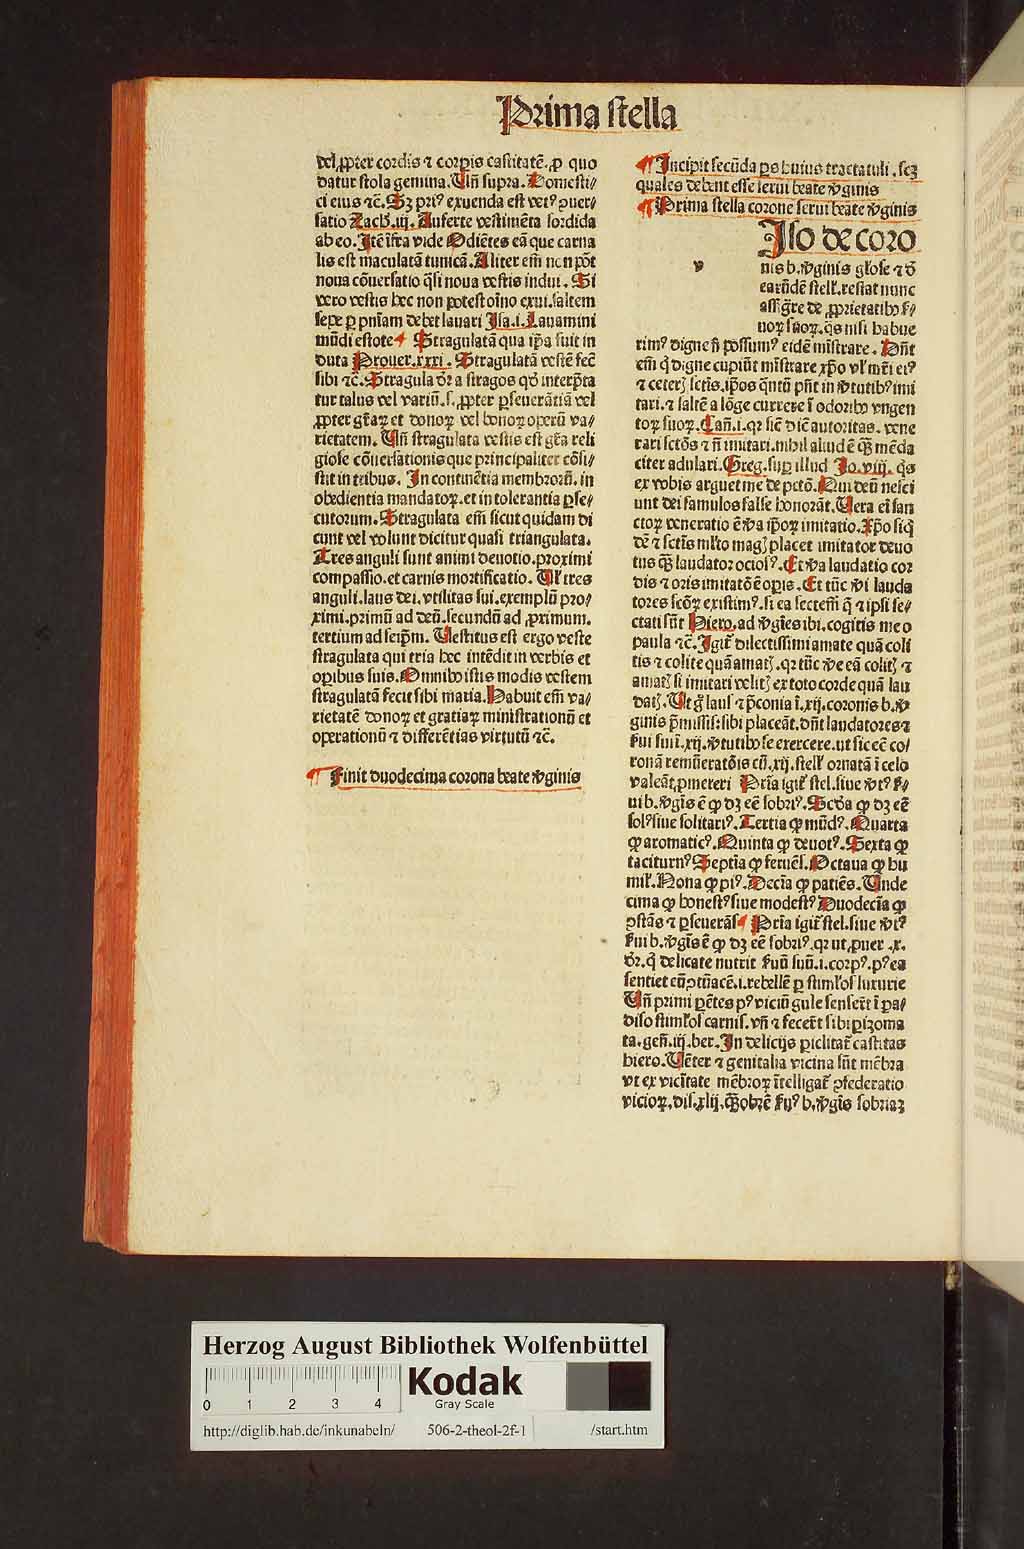 Prima stella
vel ꝓpter cordis ⁊ corꝑis castitatē. ꝓ quo
datur stola gemina. Vñ supra. Domesti⸗
ci eius ⁊c̄. Sꝫ priꝰ exuenda est vetꝰ ꝯuer⸗
satio Zach. iij. Auferte vestimēta sordida
ab eo. Itē īfra vide Odiētes eā que carna
lis est maculatā tunicā. Aliter em̄ non pōt
noua cōuersatio q̄si noua vestis indui. Si
vero vestis hec non potest oīno exui. saltem
sepe ꝑ pniam debet lauari Isa. i. Lauamini
mūdi estote Stragulatā qua ip̄a fuit in
duta Prouer. xxxi. Stragulatā vestē fec̄
sibi ⁊c̄. Stragula dr̄ a stragos qd̓ interp̄ta
tur talus vel variū. s. ꝓpter ꝑseuerātiā vel
ꝓpter gr̄aꝝ et donoꝝ vel bonoꝝ operū va⸗
rietatem. Vñ stragulata vestis est gr̄a reli
giose cōuersationis que principaliter cōsi⸗
stit in tribus. In continētia membrorū. in
obedientia mandatoꝝ. et in tolerantia ꝑse⸗
cutorum. Stragulata em̄ sicut quidam di
cunt vel volunt dicitur quasi triangulata.
Tres anguli sunt animi deuotio. proximi
compassio. et carnis mortificatio. Vl̓ tres
anguli. laus dei. vtilitas sui. exemplū pro⸗
ximi. primū ad deū. secundū ad ꝓximum.
tertium ad seip̄m. Vestitus est ergo veste
stragulata qui tria hec intēdit in verbis et
oꝑibus suis. Omnibꝰ istis modis vestem
stragulatā fecit sibi maria. Habuit em̄ va⸗
rietatē donoꝝ et gratiaꝝ ministrationū et
operationū ⁊ differētias virtutū ⁊c̄.
¶ Finit duodecima corona beate v̓ginis
¶ Incipit secūda ps huius tractatuli. scꝫ
quales debent esse serui beate v̓ginis
¶ Prima stella corone serui beate v̓ginis
v
Iso de coro
nis b. v̓ginis gl̓ose ⁊ d̓
earūdē stell̓. restat nunc
assig̓re de ꝓprietatibꝰ s̓⸗
uoꝝ suoꝝ. q̄s nisi habue
rimꝰ digne n̄ possumꝰ eidē mīstrare. Dn̄t
em̄ q̓ digne cupiūt mīstrare xp̄o vl̓ mr̄i eiꝰ
⁊ ceterꝭ sctīs. ip̄os q̄ntū pn̄t in v̓tutibꝰ imi
tari. ⁊ saltē a lōge currere ī odoribꝰ vngen
toꝝ suoꝝ. Can̄. i. qꝛ sic̄ dic̄ autoritas. vene
rari sctōs ⁊ n̄ imitari. nihil aliud ē qꝫ mēda
citer adulari. Greg. suꝑ illud Io. viij. q̄s
ex vobis arguet me de pctō. Qui deū nesci
unt dei famulos false honorāt. Vera ei̓ san
ctoꝝ veneratio ē v̓a ip̄oꝝ imitatio. Xp̄o siq̓
dē ⁊ sctīs ml̓to magꝭ placet imitator deuo
tus qꝫ laudator ociosꝰ. Et v̓a laudatio cor
dis ⁊ oris imitatōē oꝑis. Et tūc v̓i lauda
tores scōꝝ existimꝰ. si ea sectem̄ q̄ ⁊ ipsi se⸗
ctati sūt Hiero. ad v̓gīes ibi. cogitis me o
paula ⁊c̄. Igit̓ dilectissimi amate quā coli
tis ⁊ colite quā amatꝭ. qꝛ tūc v̓e eā colitꝭ ⁊
amatꝭ si imitari velitꝭ ex toto corde quā lau
datꝭ. Vt g̓ laus ⁊ p̄conia ī. xij. coronis b. v̓
ginis p̄missis: sibi placeāt. dn̄t laudatores ⁊
s̓ui sui ī. xij. v̓tutibꝰ se exercere. ut sic eē co⸗
ronā remūeratōis cū. xij. stell̓ ornatā ī celo
valeāt ꝓmereri Pria igit̓ stel. siue v̓tꝰ s̓⸗
ui b. v̓gīs ē ꝙ dꝫ eē sobriꝰ. Scd̓a ꝙ dꝫ eē
solꝰ siue solitariꝰ. Tertia ꝙ mūdꝰ. Quarta
ꝙ aromaticꝰ. Quinta ꝙ deuotꝰ. Sexta ꝙ
taciturnꝰ Septīa ꝙ feruēs. Octaua ꝙ hu
mil̓. Nona ꝙ piꝰ. Decīa ꝙ patiēs. Vnde
cima ꝙ honestꝰ siue modestꝰ Duodecīa ꝙ
ꝯstās ⁊ ꝑseuerās Pria igit̓ stel. siue v̓tꝰ
s̓ui b. v̓gīs ē ꝙ dꝫ eē sobriꝰ. qꝛ ut ꝓuer. x.
dr̄. q̓ delicate nutrit s̓uū suū. i. corpꝰ. pꝰ ea
sentiet eū ꝯtūacē. i. rebellē ꝑ stimlos luxurie
Vñ primi ꝑētes pꝰ viciū gule senserūt ī pa⸗
diso stimlos carnis. vñ ⁊ fecerūt sibi ꝑizoma
ta. gen̄. iij. ber. In delicijs ꝑiclitat̓ castitas
hiero. Vēter ⁊ genitalia vicina sūt mēbra
vt ex vicītate mēbroꝝ ītelligat̓ ꝯfederatio
vicioꝝ. dis. xlij. Qꝫobrē s̓uꝰ b. v̓gīs sobriaꝫ
Herzog August Bibliothek Wolfenbüttel
0 1 2 3 4
Kodak
Gray Scale
http://diglib.hab.de/inkunabeln/ 506-2-theol-2f-1 /start.htm